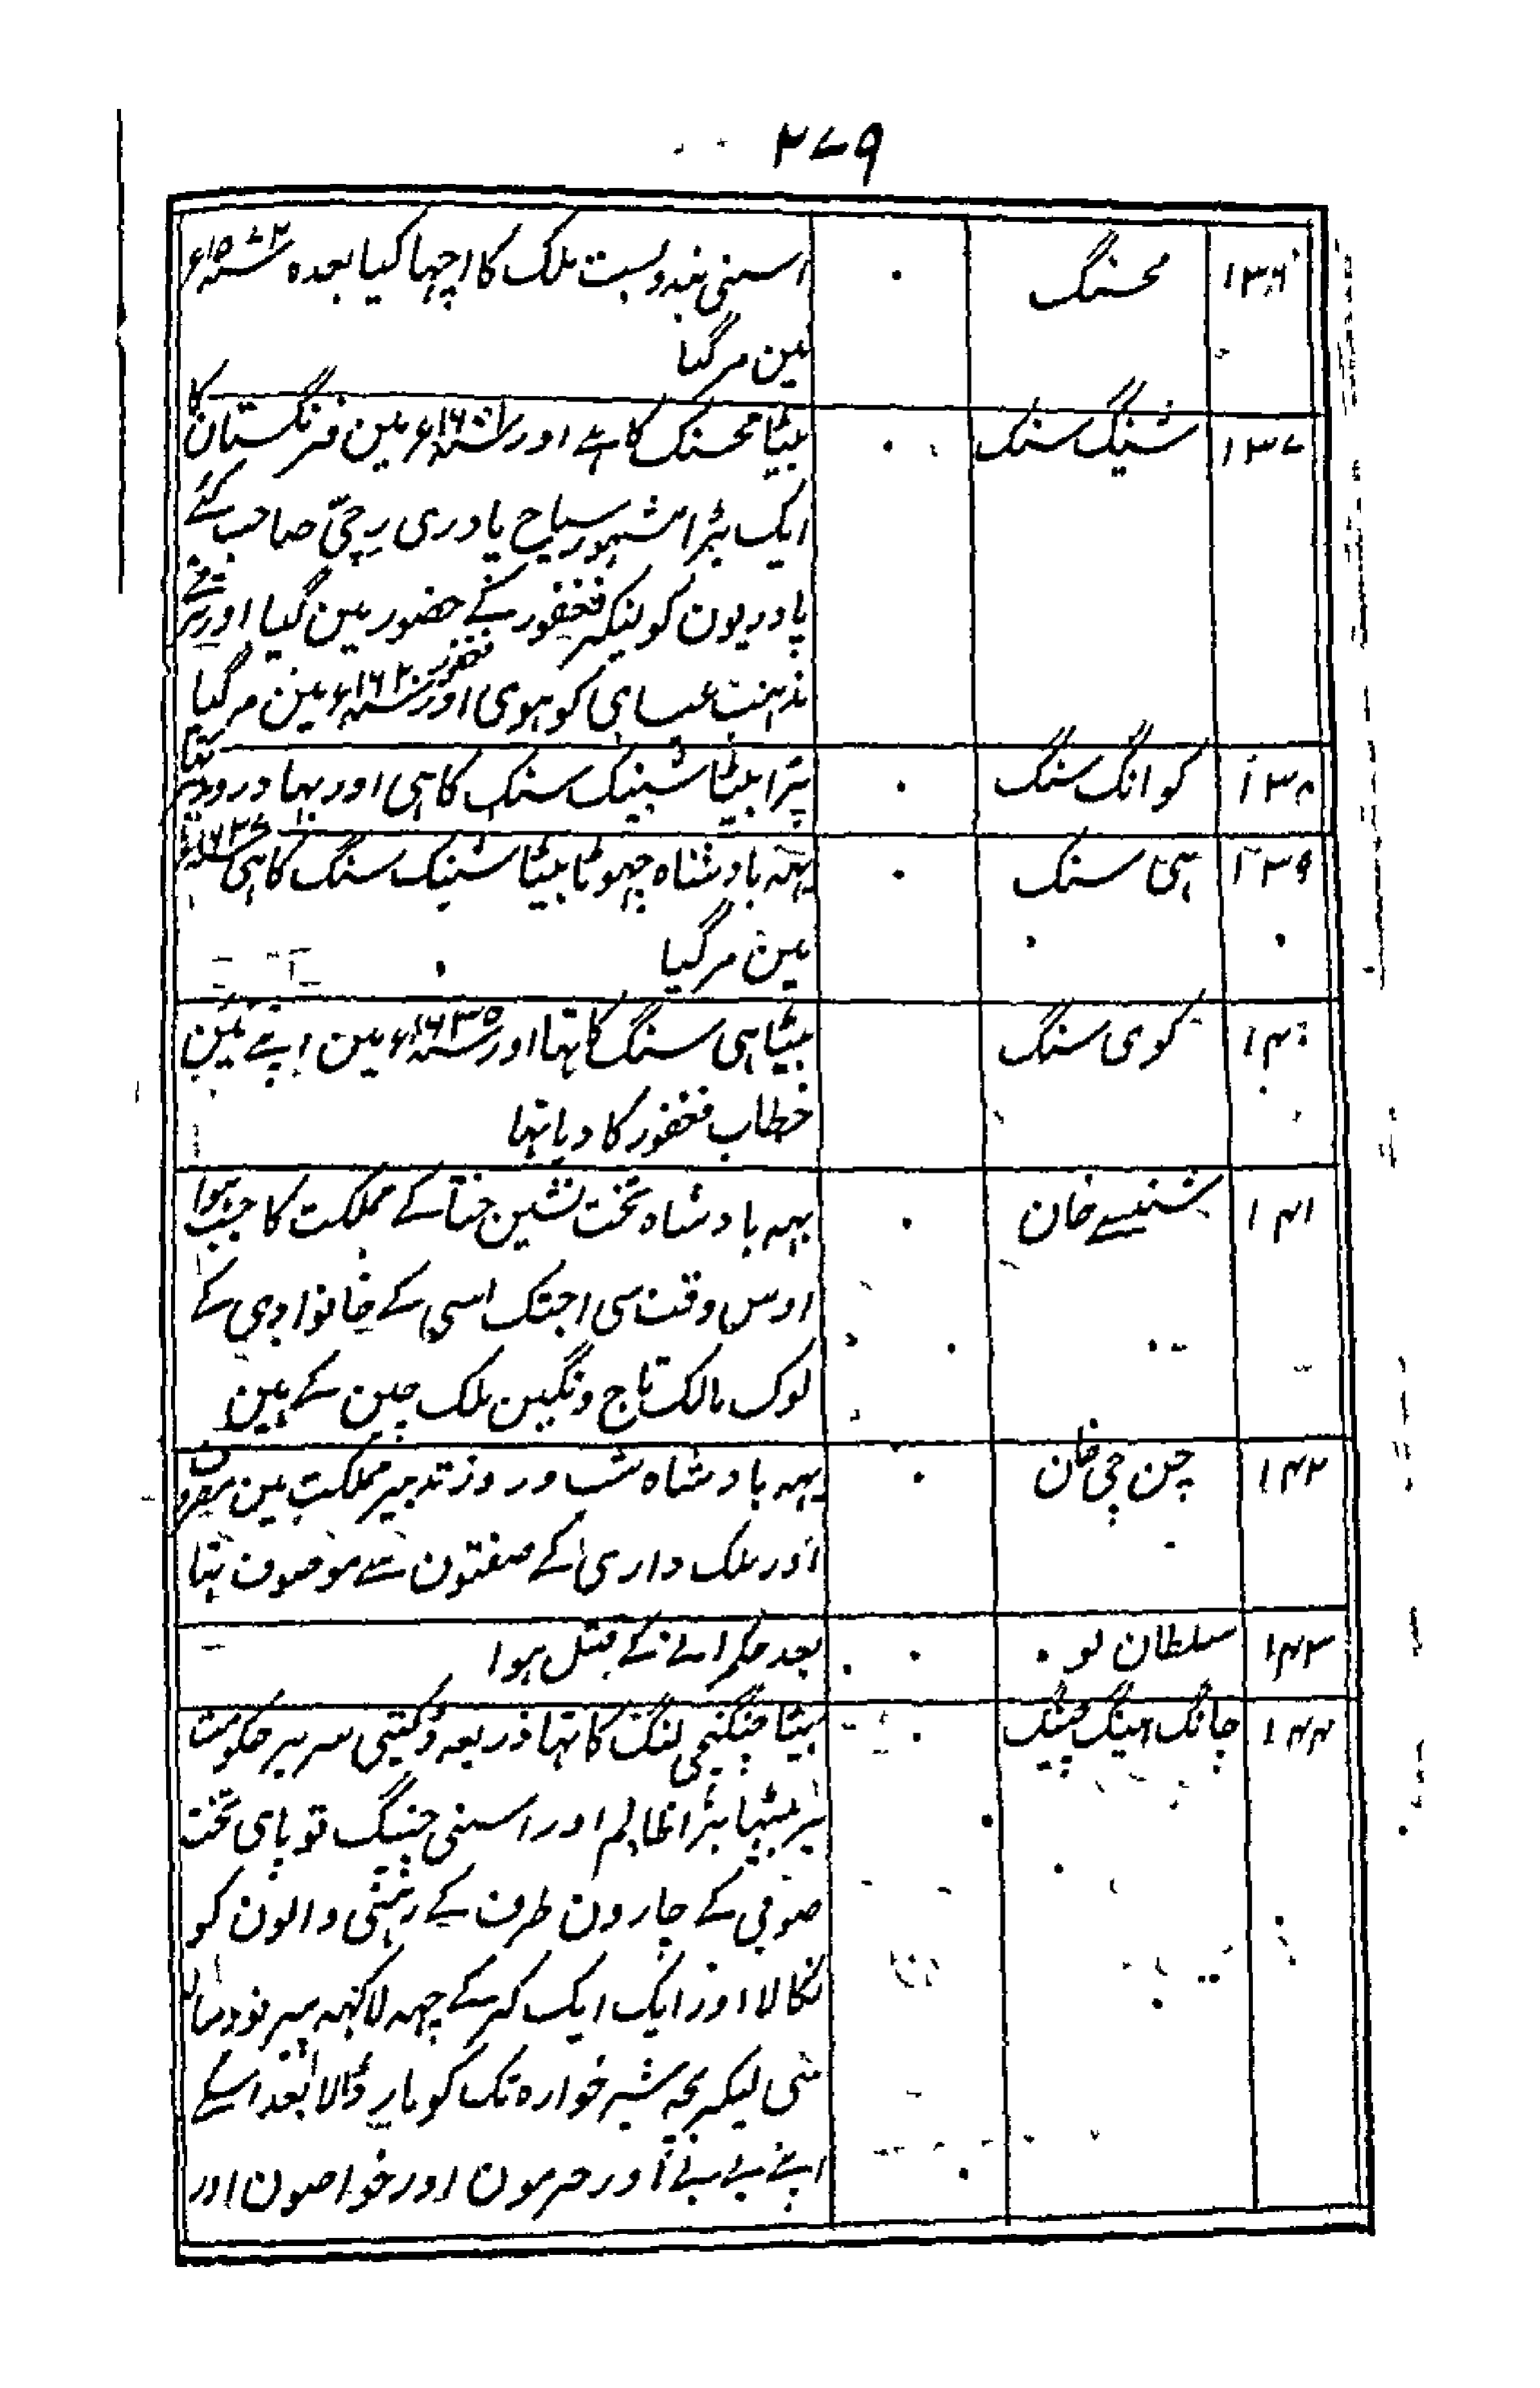 ۲۷۹
۱۳۶ محسنگ ۰ اسنی بندوبست ملک کا اچہا کیا بعدہ سنہ ۱۵۷۲ء
مین مر گیا
۱۳۷ شینگ سنگ ۰ بیٹا محسنگ کا ہے اور سنہ ۱۶۰۱ء مین فرنگستان کا
ایک بڑا مشہور سیاح پادری رچی صاحب کئے
پادریون کو لیکر فغفور کے حضور مین گیا اور
مذہب عیسای کو ہوی اور فغفور سنہ ۱۶۲۰ء مین مر گیا
۱۳۸ کوانگ سنگ ۰ بڑا بیٹا شینگ سنگ کا ہی اور بہادر و
۱۳۹ ہی سنگ ۰ یہہ بادشاہ چہوٹا بیٹا شینگ سنگ کا ہی سنہ ۱۶۲۷ء
مین مر گیا
۱۴۰ کوی سنگ بیٹا ہی سنگ کا تہا اور سنہ ۱۶۳۵ء مین اپنے تئین
خطاب فغفور کا دیا تہا
۱۴۱ شنیسے خان ۰ یہہ بادشاہ تخت نشین ختا کے مملکت کا جب ہوا
اوس وقت سی اجتک اسی کے خانوادی کے
لوک مالک تاج و نگین ملک چین کے ہین
۱۴۲ چن چی خان ۰ یہہ بادشاہ شب و روز تدبیر مملکت مین مصروف
اور ملک داری کے صفتون سے موصوف تہا
۱۴۳ سلطان لو ۰ بعد حکمرانے کے قتل ہوا
۱۴۴ چانگ ہینگ چینگ ۰ بیٹا چنگیچی لنگ کا تہا ذریعہ ڈکیتی سریر حکومت
پر بیٹہا بڑا ظالم اور اسنی چنیگ تو پای تخت
صوبی کے چارون طرف کے رہنی والون کو
نکالا اور ایک ایک کر کے چہہ لاکہہ پیر نود سالہ
سی لیکر بچہ شیر خوارہ تک کو مار ڈالا بعد اسکے
اپنے بے بے اور حرمون اور خواصون اور